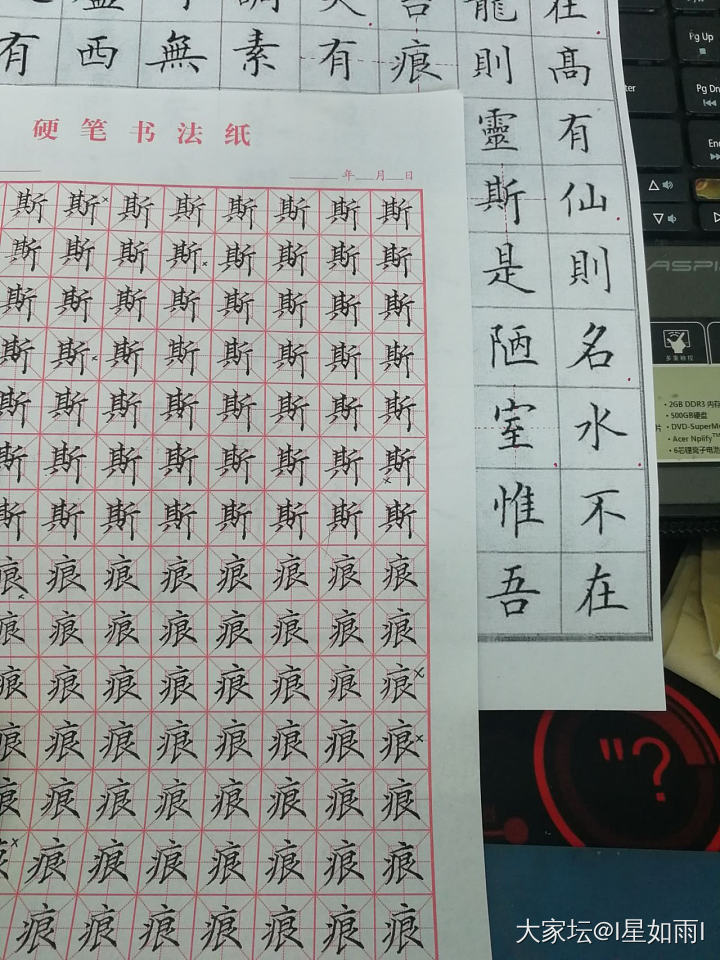 硬笔书法纸
年 月 日
斯斯斯斯斯斯斯斯
斯斯斯斯斯斯斯斯
斯斯斯斯斯斯斯斯
斯斯斯斯斯斯斯斯
斯斯斯斯斯斯斯斯
斯斯斯斯斯斯斯斯
斯斯斯斯斯斯斯斯
痕痕痕痕痕痕痕痕
痕痕痕痕痕痕痕痕
痕痕痕痕痕痕痕痕
痕痕痕痕痕痕痕痕
痕痕痕痕痕痕痕痕
痕痕痕痕痕痕痕
痕痕痕痕痕痕痕
在高有仙則名水不在
龍則靈斯是陋室惟吾
痕
有
調素
無
西
有
Pg Up
Pg Dn
ASPI
多重触控
• 2GB DDR3 内存
• 500GB硬盘
• DVD-SuperM
• Acer Nplify™
• 6芯锂离子电池
"?
大家坛@l星如雨l